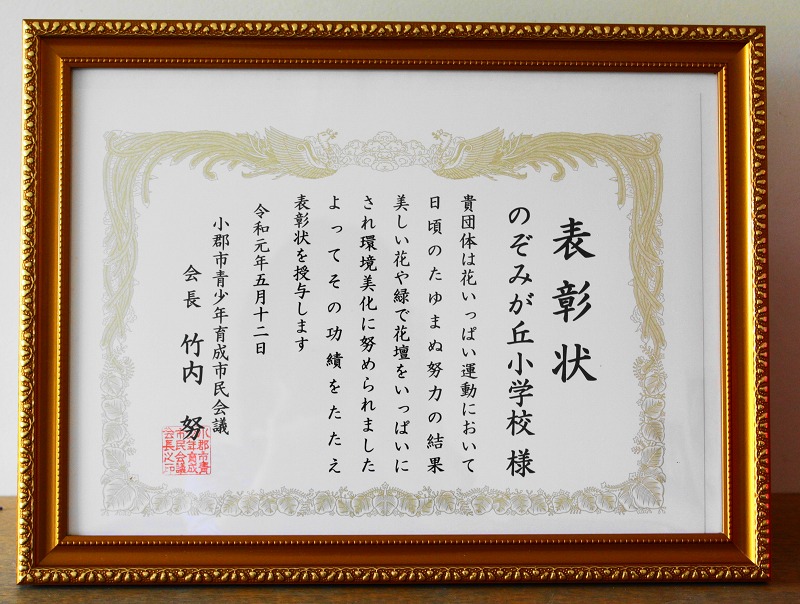 表彰状
のぞみが丘小学校様
貴団体は花いっぱい運動において
日頃のたゆまぬ努力の結果
美しい花や緑で花壇をいっぱいに
され環境美化に努められました
よってその功績をたたえ
表彰状を授与します
令和元年五月十二日
小郡市青少年育成市民会議
会長 竹内 努
小郡市青
少年育成
市民会議
会長之印